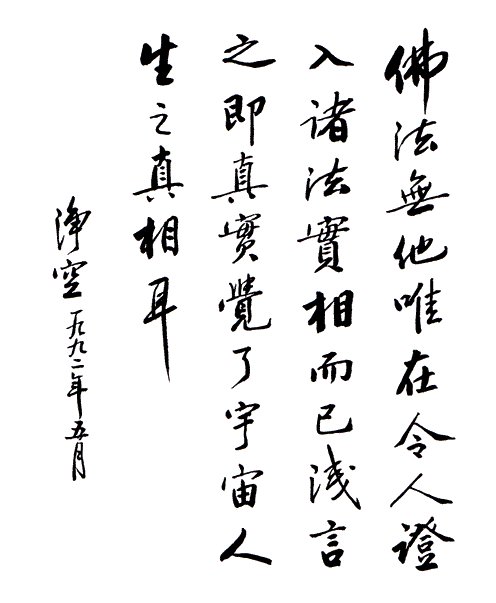 佛法無他唯在令人證
入諸法實相而已浅言
之即真實覺了宇宙人
生之真相耳
淨空一九九二年五月